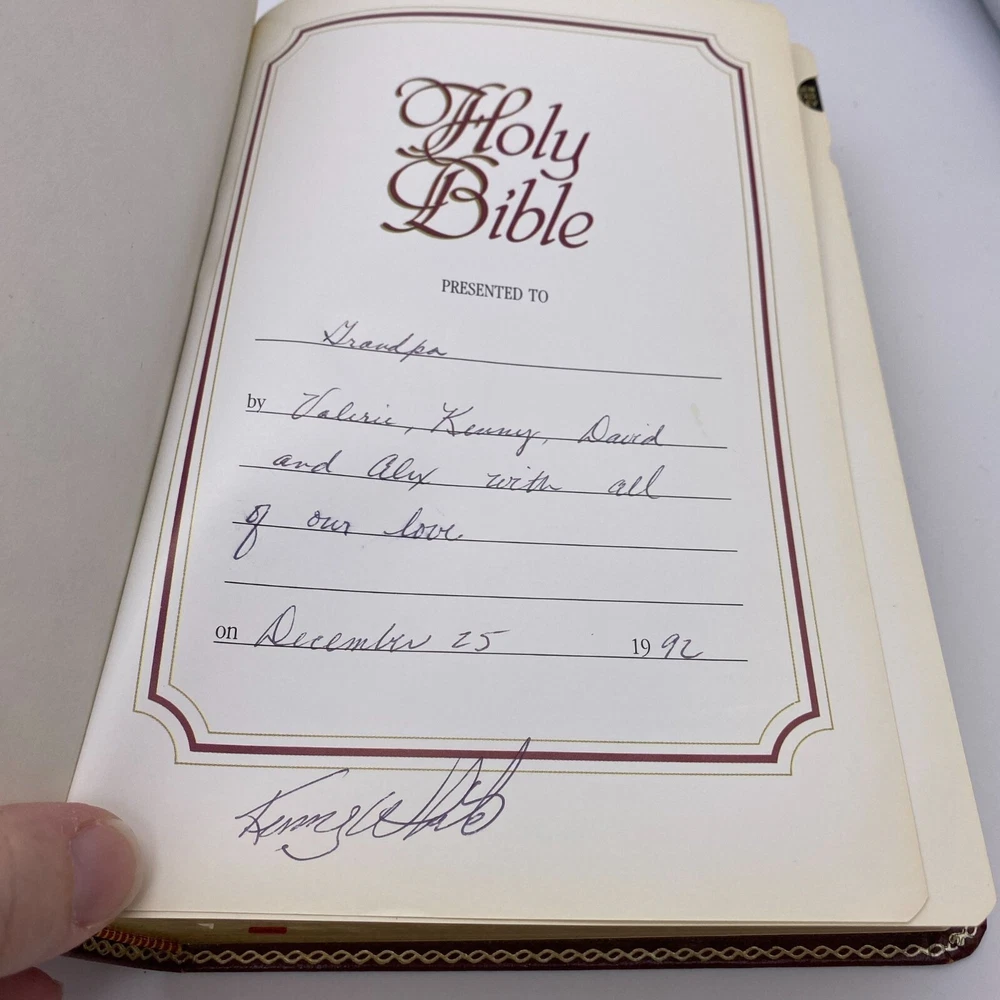 Holy
Bible
PRESENTED TO
Grandpa
by Valerie, Kenny, David
and Alex with all
of our love.
on December 25 1992
Kenny